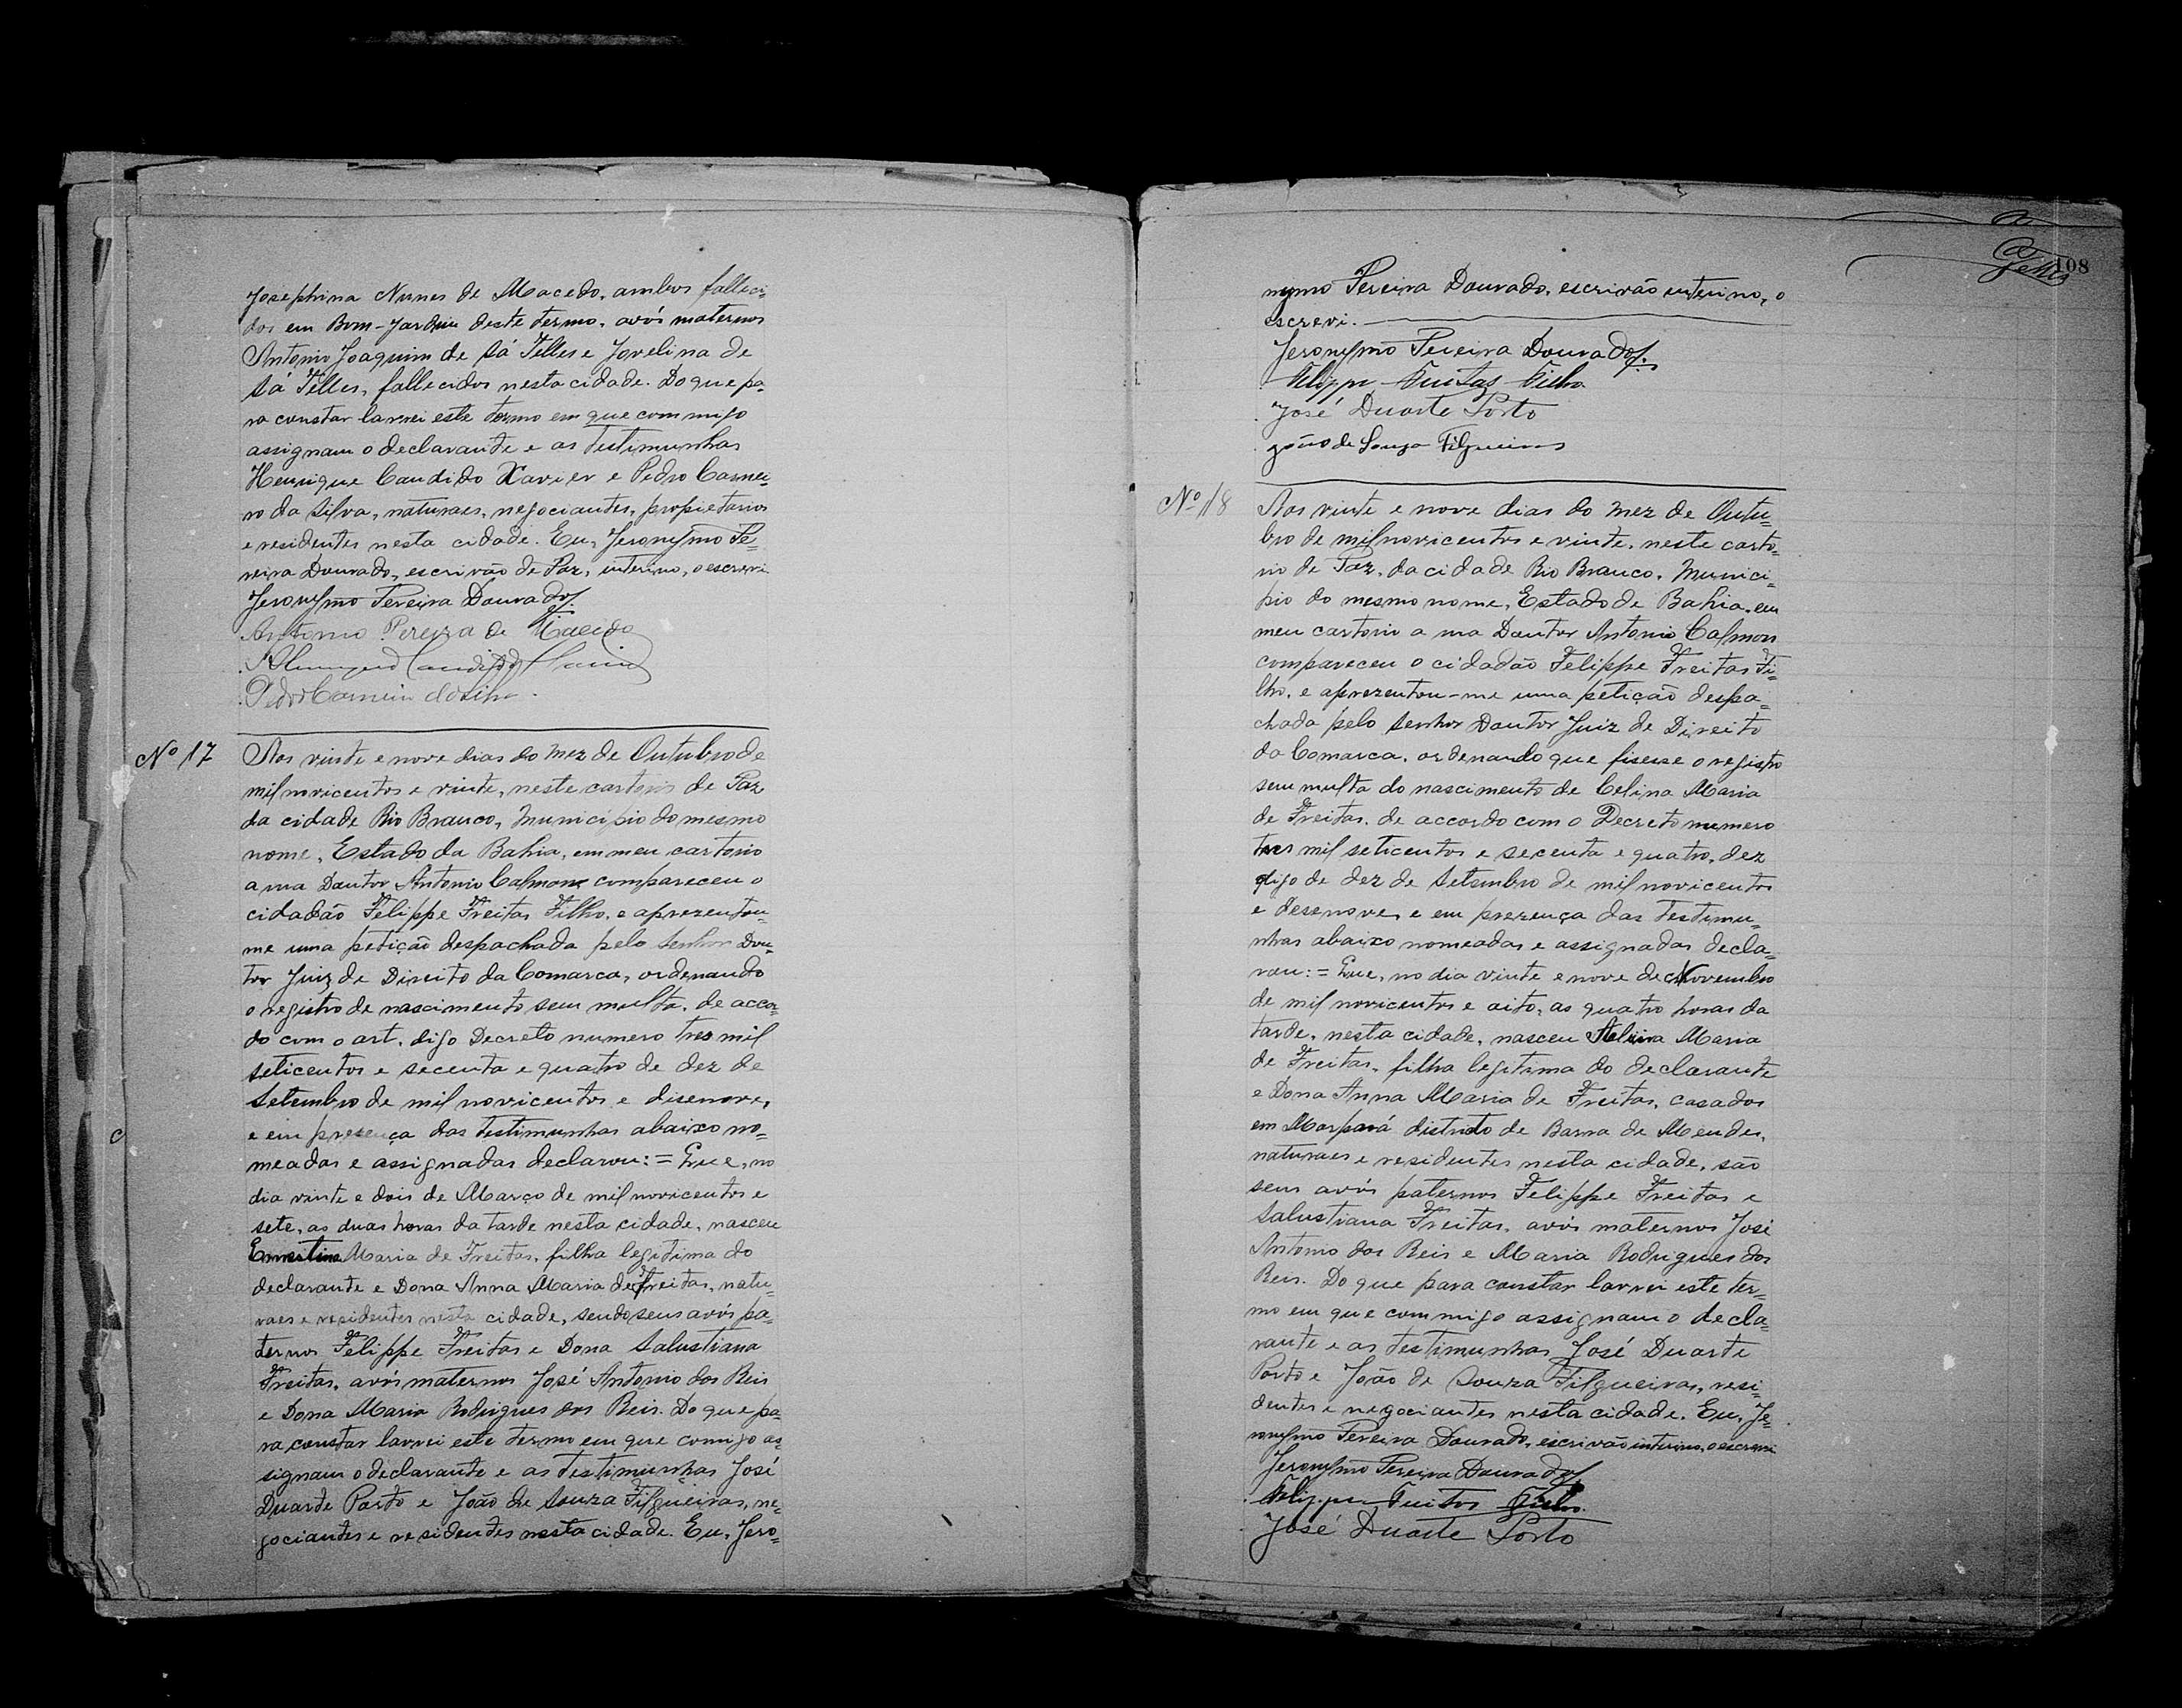 Josephina Nunes de Macedo, ambos falleci-
dos em Bom-Jardim deste termo, avós maternos
Antonio Joaquim de Sá Telles e Jovelina de
Sá Telles, fallecidos nesta cidade. Do que pa-
ra constar lavrei este termo em que commigo
assignam o declarante e as testimunhas
Henrique Candido Xavier e Pedro Carnei-
ro da Silva, naturaes, negociantes, propietarios
e residentes nesta cidade. Eu, Jeronymo Pe-
reira Dourado, escrivão de Paz, interino, o escrevi
Jeronymo Pereira Dourado.
Antonio Pereira de Macedo
Candido
Pedro Carneiro da Silva.
Nº 17
Aos vinte e nove dias do mez de Outubro de
mil novicentos e vinte, neste cartorio de Paz
da cidade Rio Branco, Municipio do mesmo
nome, Estado da Bahia, em meu cartorio
a rua Doutor Antonio Calmon compareceu o
cidadão Felippe Freitas Filho, e aprezentou-
me uma petição despachada pelo Senhor Dou-
tor Juiz de Direito da Comarca, ordenando
o registro de nascimento sem multa, de accor-
do com o art. digo Decreto numero tres mil
seticentos e secenta e quatro de dez de
Setembro de mil novicentos e disenove,
e em presença das testimunhas abaixo no-
meadas e assignadas declarou: = Que, no
dia vinte e dois de Março de mil novicentos e
sete, as duas horas da tarde nesta cidade, nasceu
Ernestina Maria de Freitas, filha legitima do
declarante e Dona Anna Maria de Freitas, natu-
raes e residentes nesta cidade, sendo seus avós pa-
ternos Felippe Freitas e Dona Salustiana
Freitas, avós maternos José Antonio dos Reis
e Dona Maria Rodrigues dos Reis. Do que pa-
ra constar lavrei este termo em que comigo as-
signam o declarante e as testimunhas José
Duarte Porto e João de Souza Filgueiras, ne-
gociantes e residentes nesta cidade. Eu, Jero-
108
nymo Pereira Dourado, escrivão interino, o
escrevi.
Jeronymo Pereira Dourado.
Felippe Freitas Filho
José Duarte Porto
João de Souza Filgueiras
Nº 18
Aos vinte e nove dias do mez de Outu-
bro de mil novicentos e vinte, neste carto-
rio de Paz, da cidade Rio Branco, Munici-
pio do mesmo nome, Estado de Bahia, em
meu cartorio a rua Doutor Antonio Calmon
compareceu o cidadão Felippe Freitas Fi-
lho, e aprezentou-me uma petição despa-
chada pelo Senhor Doutor Juiz de Direito
da Comarca, ordenando que fisesse o registro
sem multa do nascimento de Celina Maria
de Freitas, de accordo com o Decreto numero
tres mil seticentos e secenta e quatro, dez
digo de dez de Setembro de mil novicentos
e desenove, e em prezença das testimu-
nhas abaixo nomeadas e assignadas decla-
rou: = Que, no dia vinte e nove de Novembro
de mil novicentos e oito, as quatro horas da
tarde, nesta cidade, nasceu Maria
de Freitas, filha legitima do declarante
e Dona Anna Maria de Freitas, casados
em Morpará districto de Barra de Mendes,
naturaes e residentes nesta cidade, são
seus avós paternos Felippe Freitas e
Salustiana Freitas, avós maternos José
Antonio dos Reis e Maria Rodrigues dos
Reis. Do que para constar lavrei este ter-
mo em que commigo assignam o decla-
rante e as testimunhas José Duarte
Porto e João de Souza Filgueiras, resi-
dentes e negociantes nesta cidade. Eu, Je-
ronymo Pereira Dourado, escrivão interino, o escrevi
Jeronymo Pereira Dourado.
Felippe Freitas Filho.
José Duarte Porto